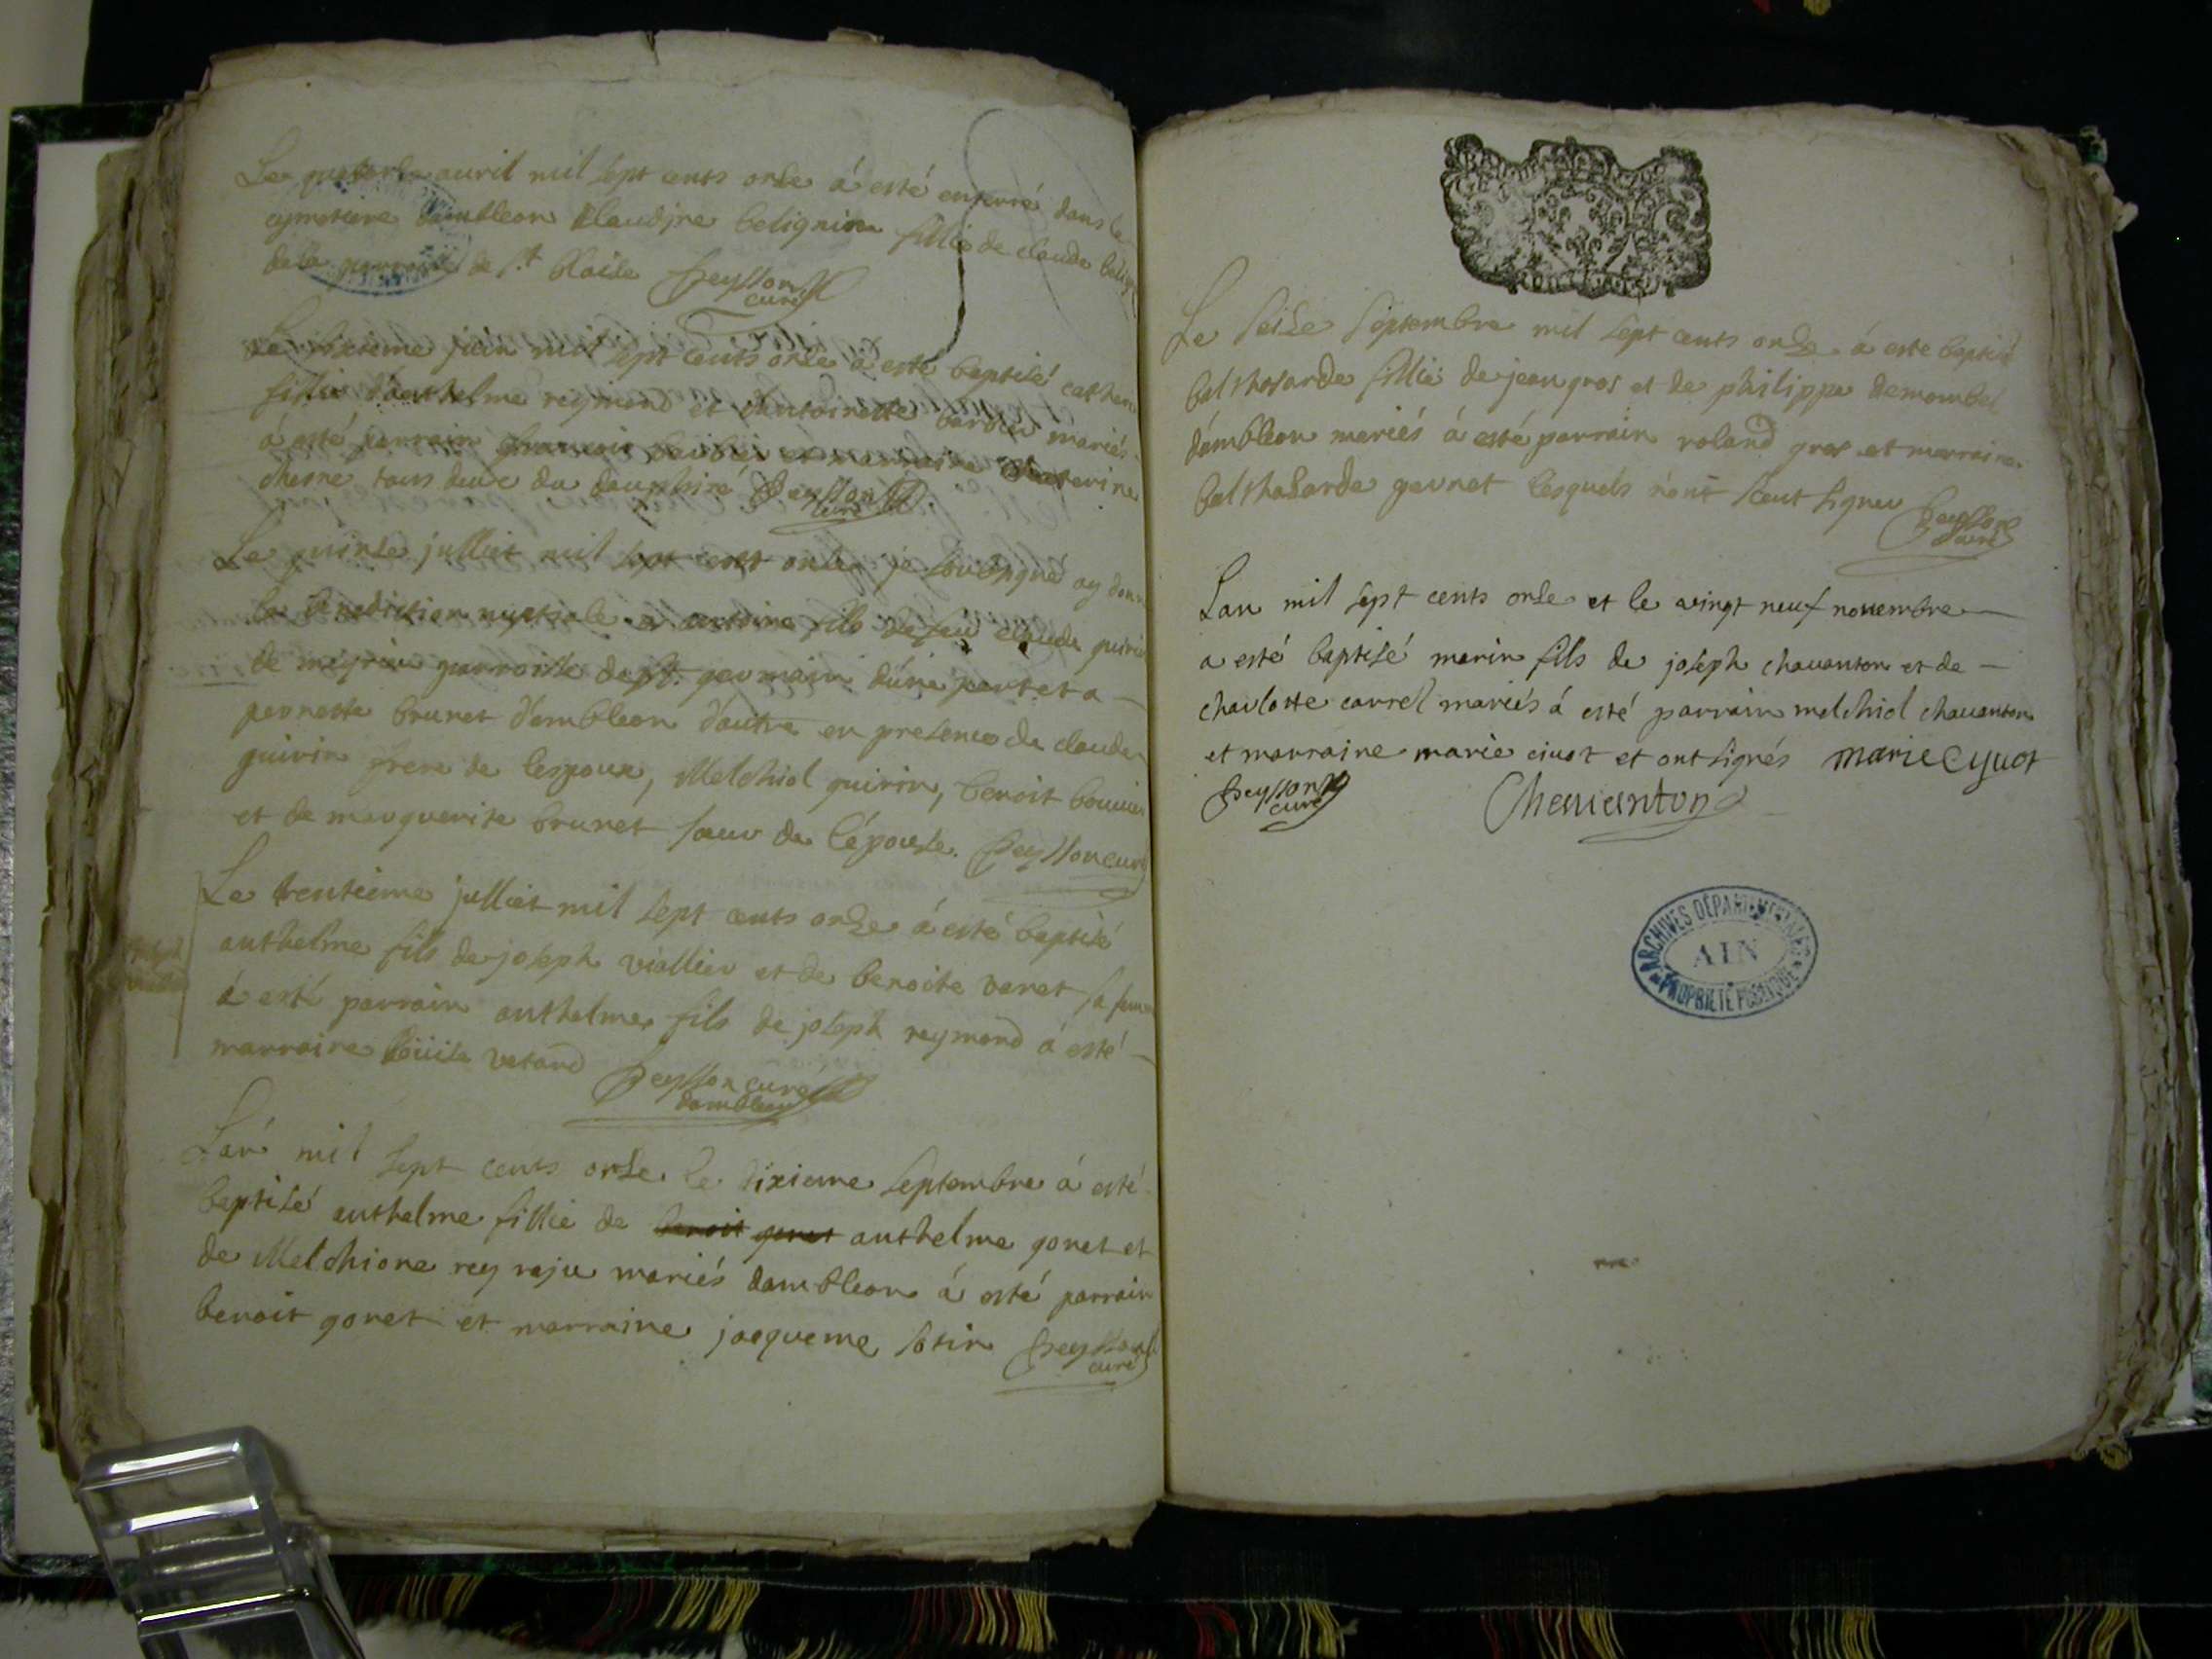 Le quatorse auril mil sept cents onse á esté enterré dans le
cymetiere dambleon Claudine belignin fillie de claude
de la parroisse de St blaise Peysson
curé
Le sixieme juin mil sept cents onse á esté baptisé
fillie d'anthelme reymond et d'antoinette mariés
á esté parrain francois et marraine Caterine
tous deux du dauphiné Peysson
curé
Le quinse julliet mil sept cents onse je soubsigné ay
la benediction nuptiale a antoine fils de feu claude
de meyrieu parroisse de st. germain d'une part et a
pernette brunet d'ambleon d'autre en presence de claude
guirin frere de lespoux, Melchiol guirin, benoit bouvier
et de marguerite brunet soeur de l'épouse. Peysson curé
Le trentieme julliet mil sept cents onse á esté baptisé
anthelme fils de joseph viallier et de benoite veret sa
á esté parrain anthelme fils de joseph reymond á esté
marraine louise Peysson curé
dambleon
Lan mil sept cents onse le dixieme septembre á esté
baptisé anthelme fillie de benoit gonet anthelme gonet et
de Melchione rey mariés dambleon á esté parrain
benoit gonet et marraine jacqueme Peysson
curé
Le seise septembre mil sept cents onse á esté baptisé
balthasarde fillie de jean gros et de philippe demombel
dámbleon mariés á esté parrain roland gros et marraine
balthasarde gevret lesquels n'ont sceut signer Peysson
curé
Lan mil sept cents onse et le vingt neuf nouembre
a esté baptisé marin fils de joseph chauanton et de
charlotte carrel mariés á esté parrain melchiol chauanton
et marraine marie ciuot et ont signés marie Cyuot
Peysson
curé
Chauanton
ARCHIVES DÉPARTEMENTALES
AIN
PROPRIÉTÉ PUBLIQUE